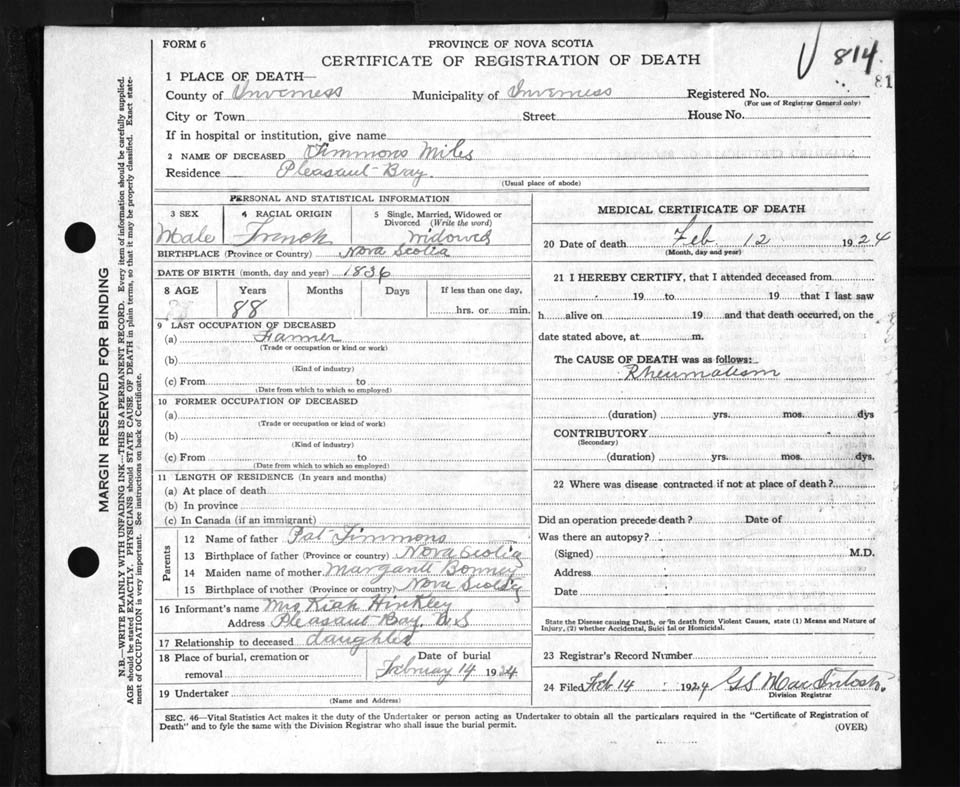 FORM 6
PROVINCE OF NOVA SCOTIA
CERTIFICATE OF REGISTRATION OF DEATH
814
81
1 PLACE OF DEATH—
County of Inverness Municipality of Inverness Registered No.
(For use of Registrar General only)
City or Town Street House No.
If in hospital or institution, give name
2 NAME OF DECEASED Timmons Miles
Residence Pleasant Bay.
(Usual place of abode)
PERSONAL AND STATISTICAL INFORMATION
3 SEX 4 RACIAL ORIGIN 5 Single, Married, Widowed or Divorced (Write the word)
Male French Widowed
BIRTHPLACE (Province or Country) Nova Scotia
DATE OF BIRTH (month, day and year) 1836
8 AGE Years Months Days If less than one day,
88 hrs. or min.
9 LAST OCCUPATION OF DECEASED
(a) Farmer
(Trade or occupation or kind or work)
(b)
(Kind of industry)
(c) From to
(Date from which to which so employed)
10 FORMER OCCUPATION OF DECEASED
(a)
(Trade or occupation or kind of work)
(b)
(Kind of industry)
(c) From to
(Date from which to which so employed)
11 LENGTH OF RESIDENCE (In years and months)
(a) At place of death
(b) In province
(c) In Canada (if an immigrant)
Parents
12 Name of father Pat Timmons
13 Birthplace of father (Province or country) Nova Scotia
14 Maiden name of mother Margarett Bonney
15 Birthplace of mother (Province or country) Nova Scotia
16 Informant's name Mrs Kiah Hinkley
Address Pleasant Bay, N.S
17 Relationship to deceased daughter
18 Place of burial, cremation or removal Date of burial
February 14 1924
19 Undertaker
(Name and Address)
MEDICAL CERTIFICATE OF DEATH
20 Date of death Feb 12 1924
(Month, day and year)
21 I HEREBY CERTIFY, that I attended deceased from
19 to 19 that I last saw
h alive on 19 and that death occurred, on the
date stated above, at m.
The CAUSE OF DEATH was as follows:
Rheumatism
(duration) yrs. mos. dys
CONTRIBUTORY
(Secondary)
(duration) yrs. mos. dys.
22 Where was disease contracted if not at place of death?
Did an operation precede death? Date of
Was there an autopsy?
(Signed) M.D.
Address
Date
State the Disease causing Death, or in death from Violent Causes, state (1) Means and Nature of
Injury, (2) whether Accidental, Suicidal or Homicidal.
23 Registrar's Record Number
24 Filed Feb 14 1924 G S MacIntosh.
Division Registrar
SEC. 46—Vital Statistics Act makes it the duty of the Undertaker or person acting as Undertaker to obtain all the particulars required in the "Certificate of Registration of
Death" and to fyle the same with the Division Registrar who shall issue the burial permit.
(OVER)
MARGIN RESERVED FOR BINDING
N.B.—WRITE PLAINLY WITH UNFADING INK—THIS IS A PERMANENT RECORD. Every item of information should be carefully supplied.
AGE should be stated EXACTLY. PHYSICIANS should STATE CAUSE OF DEATH in plain terms, so that it may be properly classified. Exact state-
ment of OCCUPATION is very important. See instructions on back of Certificate.